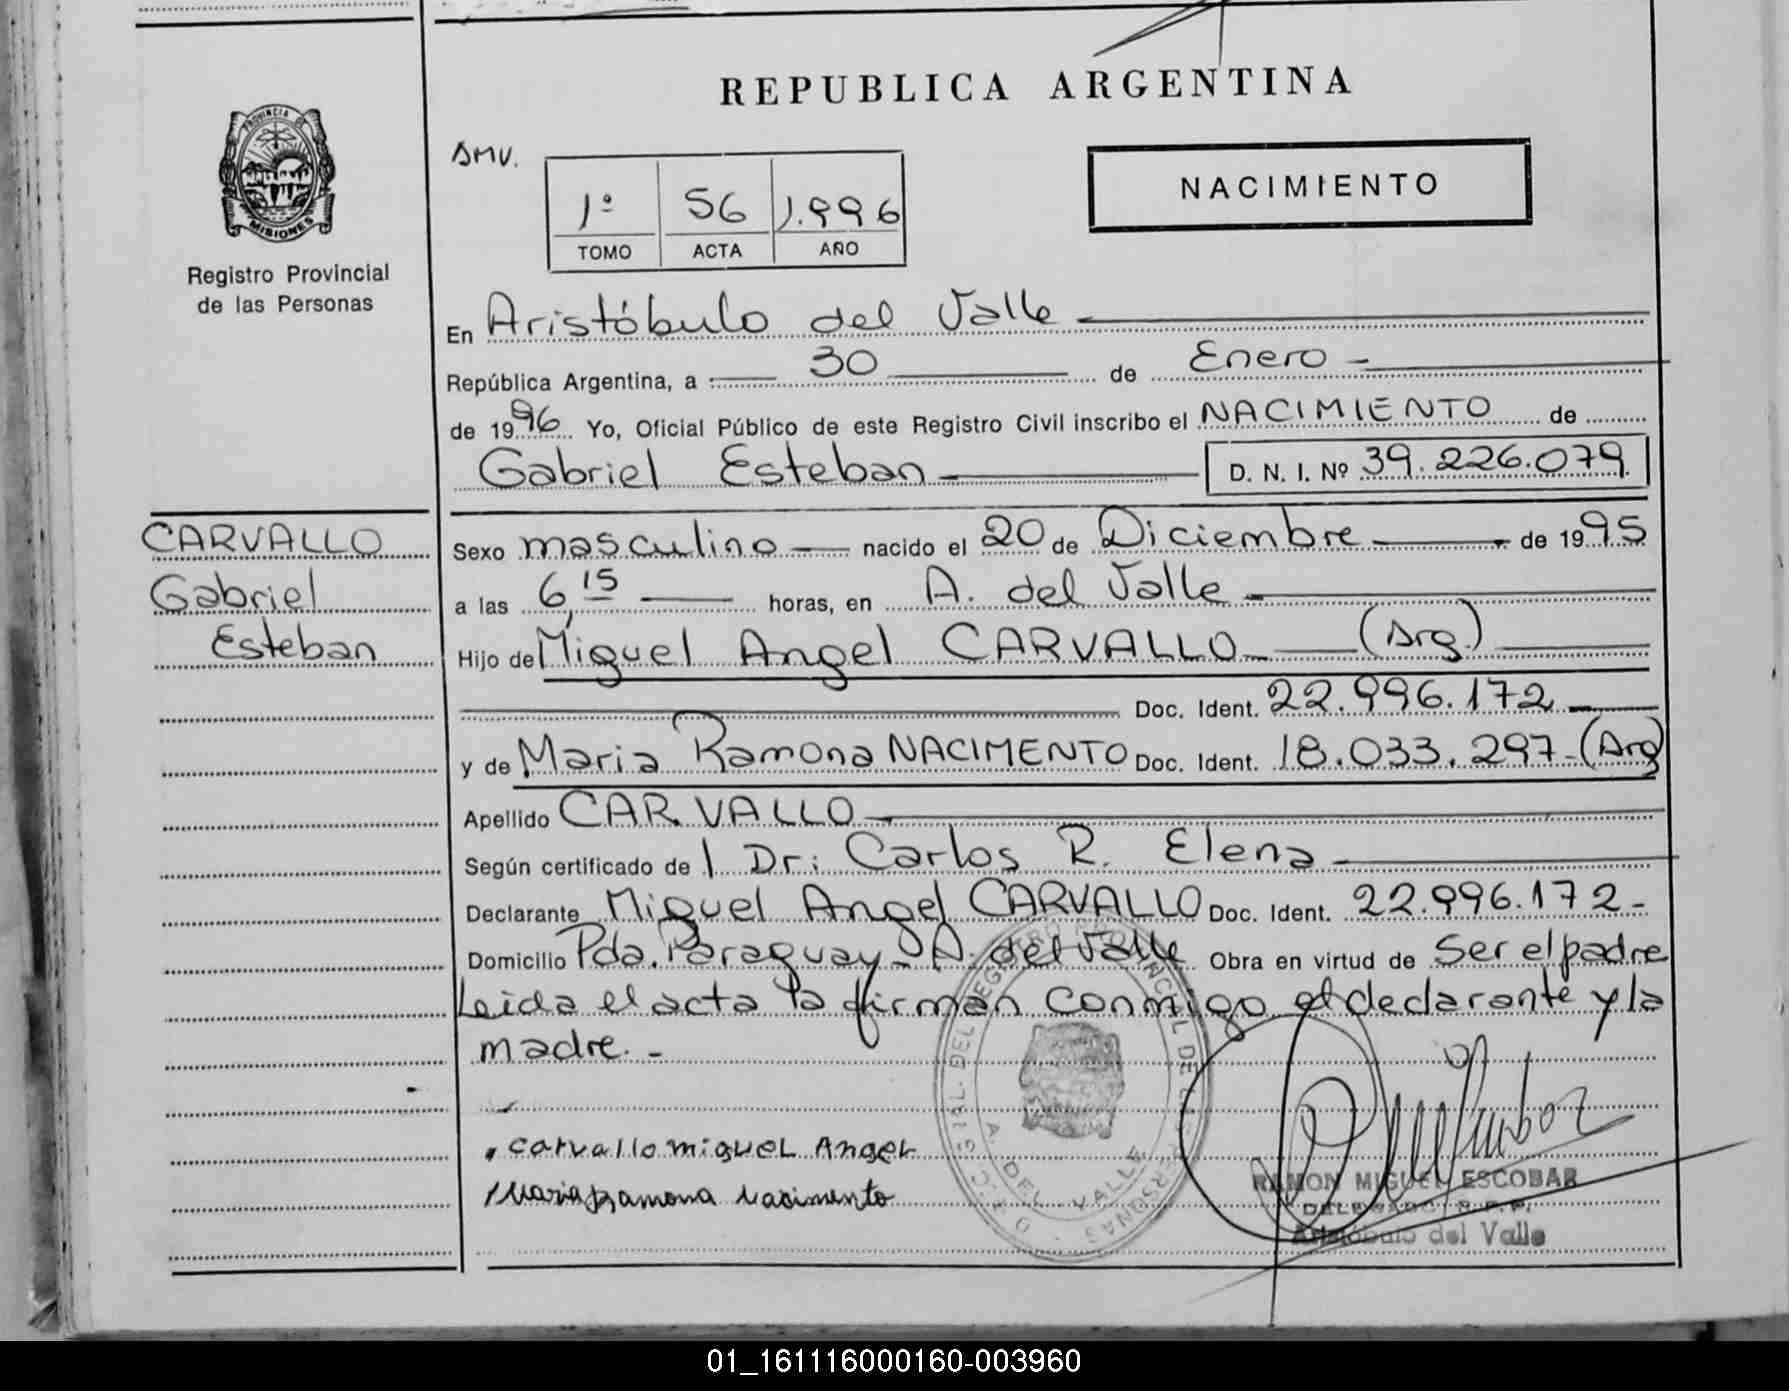 REPUBLICA ARGENTINA
PROVINCIA DE
MISIONES
Registro Provincial
de las Personas
SMV.
1º 56 1.996
TOMO ACTA AÑO
NACIMIENTO
En Aristóbulo del Valle
República Argentina, a 30 de Enero
de 1996 Yo, Oficial Público de este Registro Civil inscribo el NACIMIENTO de
Gabriel Esteban D. N. I. Nº 39.226.079
CARVALLO
Gabriel
Esteban
Sexo masculino nacido el 20 de Diciembre de 1995
a las 6,15 horas, en A. del Valle
Hijo de Miguel Angel CARVALLO (Arg)
Doc. Ident. 22.996.172
y de Maria Ramona NACIMENTO Doc. Ident. 18.033.297-(Arg)
Apellido CARVALLO
Según certificado de l Dr: Carlos R. Elena
Declarante Miguel Angel CARVALLO Doc. Ident. 22.996.172-
Domicilio Pda. Paraguay - A. del Valle Obra en virtud de Ser el padre
Leida el acta la firman conmigo el declarante y la
madre. -
carvallo miguel Angel
Maria Ramona Nacimento
A. DEL VALLE
RAMON MIGUEL ESCOBAR
DELEGADO R.P.P.
Aristóbulo del Valle
01_161116000160-003960